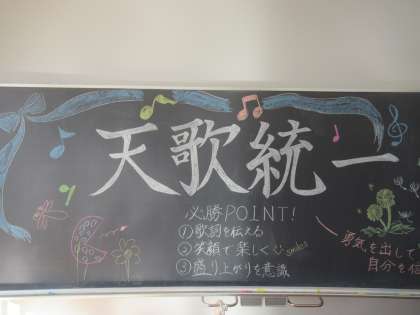 天歌統一
必勝POINT!
①歌詞を伝える
②笑顔で楽しく smile!
③盛り上がりを意識
勇気を出して
自分を信